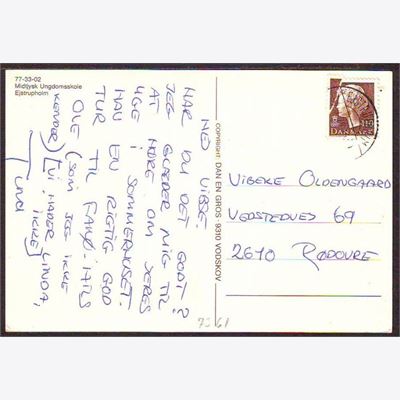 77-33-02
Midtjysk Ungdomsskole
Ejstrupholm
HEJ VIBSE.
HAR DU DET GODT?
JEG GLÆDER MIG TIL
AT HØRE OM JERES
UGE I SOMMERHUSET.
HAV EN RIGTIG GOD
TUR TIL FANØ. HILS
OLE (SOM JEG IKKE
KENDER) [VI HADER LINDA,
IKKE]
copyright DAN EN GROS - 9310 VODSKOV
DANMARK
VIBEKE OLDENGAARD
VEDSTEDVEJ 69
2610 RØDOVRE